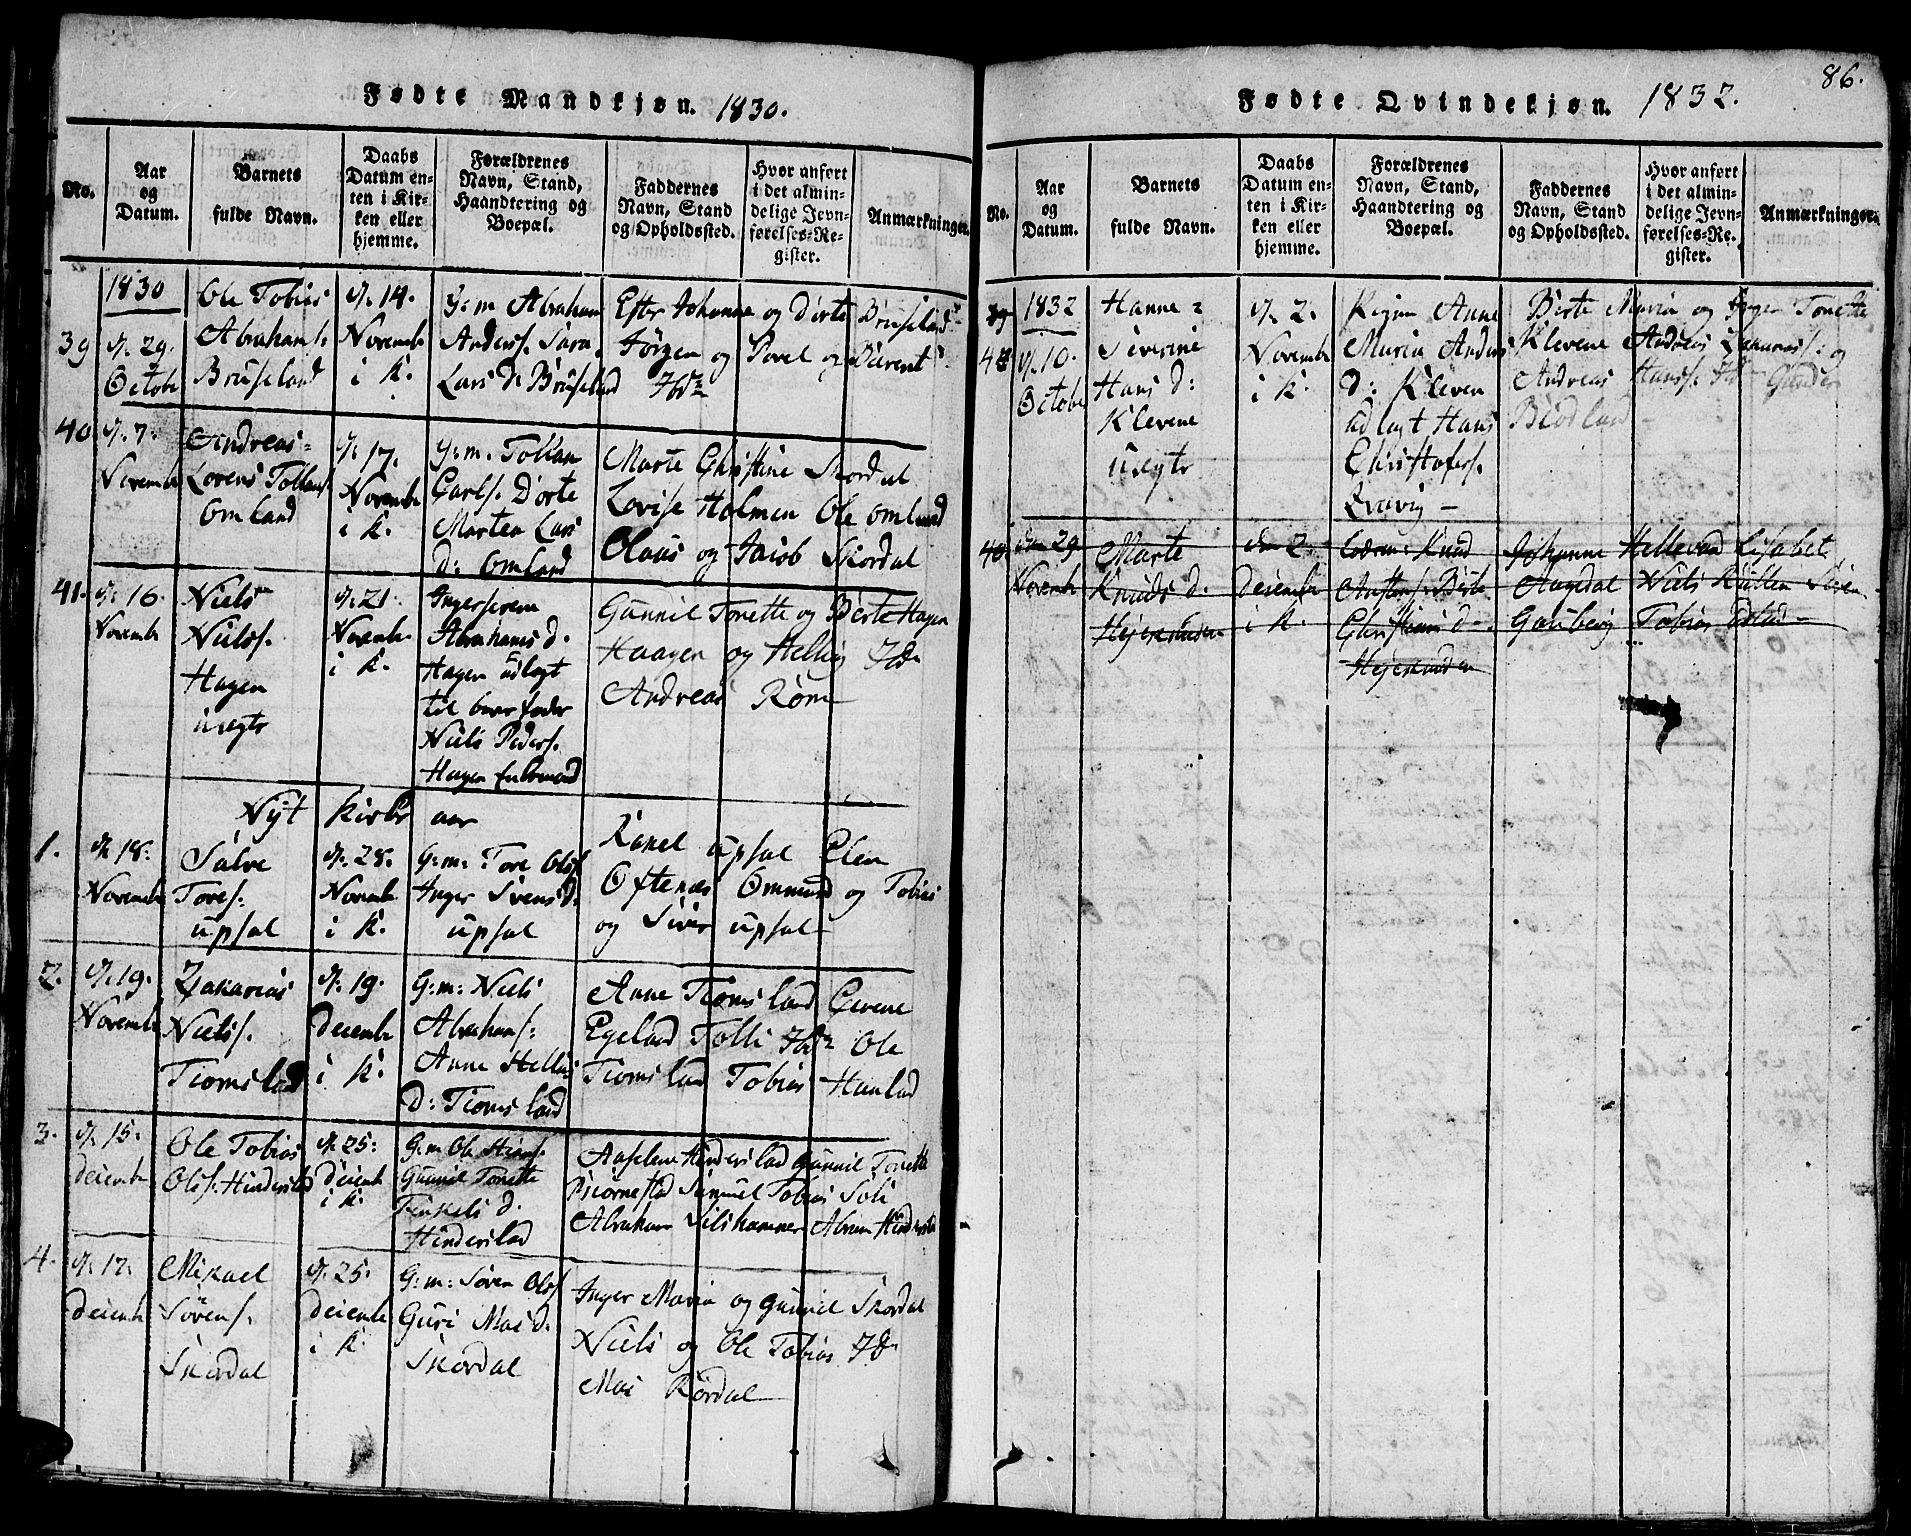 Fødte Mandkjøn. 1830.
No.
Aar
og
Datum.
Barnets
fulde Navn.
Daabs
Datum en-
ten i Kir-
ken eller
hjemme.
Forældrenes
Navn, Stand,
Haandtering og
Boepæl.
Faddernes
Navn, Stand
og Opholdssted.
Hvor anført
i det almin-
delige Jevn-
førelses-Re-
gister.
Anmærkninger.
39
1830
d. 29.
Octobr
Ole Tobias
Abrahams.
Bruseland
d. 14.
Novembr
i K.
G:m Abraham
Anders. Sara
Lars D: Bruseland
Johanne og Dorte Bruseland
Jörgen og Povel og Berent
Ibd
40
d. 7.
Novembr
Andreas
Lorens Tollaks.
Omland
d. 17.
Novembr
i K.
G:m. Tollak
Carls. Dorte
Marten Lars
D: Omland
Marte Christine Skordal
Lovise Holmen Ole Omland
Olaus og Jacob Skordal
41.
d. 16.
Novembr
Niels
Niels.
Hagen
uægte
d. 21.
Novembr
i K.
Abrahams d.
Hagen udlagt
til barnefader
Niels Peders.
Hagen
Gunnil Tonette og Berte Hagen
Haagen og Hellig Ibd
Andreas Röm
Nyt Kirke aar
1.
d. 18.
Novembr
Salve
Tores.
upsal
d. 28.
Novembr
i K.
G:m: Tore Ols.
Inger Svens d.
upsal
Rakel upsal Elen
Oftenæs Ommund og Tobias
og Siver upsal
2.
d. 19.
Novembr
Zakarias
Niels.
Tiomsland
d. 19.
decembr
i K.
G:m: Niels
Abrahams:
Anne Hellies
D: Tiomsland
Anne Tiomsland Gurine
Egeland Tolli Ibd Ole
Tiomsland Tobias Hauland
3.
d. 15.
decembr
Ole Tobias
Ols. Hinderslad
d. 25.
decembr
i K.
G:m Ole Hans.
Gunnil Tonette
d.
Hinderslad
Aaselene Hinderslad Gunnil Tonette
Biörnestad Samuel Tobias Soli
Abraham Silshammer Abram Hinderslad
4.
d. 17.
decembr
Mikael
Sörens.
Skordal
d. 25.
decembr
i K.
G:m: Sören Ols.
Guri Mos d.
Skordal
Inger Maria og Gunnil Skordal
Niels og Ole Tobias Ibd
Mos Rördal
Fødte Qvindekjøn. 1832.
86.
No.
Aar
og
Datum.
Barnets
fulde Navn.
Daabs
Datum en-
ten i Kir-
ken eller
hjemme.
Forældrenes
Navn, Stand,
Haandtering og
Boepæl.
Faddernes
Navn, Stand
og Opholdssted.
Hvor anført
i det almin-
delige Jevn-
førelses-Re-
gister.
Anmærkninger.
39
1832
d. 10.
Octobr
Hanne
Siverine
Hans d:
Klevene
uægte
d. 2.
Novembr
i K.
Pigen Anne
Maria Anders
d: Kleven
udlagt Hans
Christofers.
Berte Maria og Inger Tonette
Klevene Andreas Zakarias. og
Andreas Hans. Gunder
40
den 29
Novembr
Marte
Knuds d:
den 2
decembr
i K.
Knud
Berte
Christians d.
Johanne Hellevand Lisabet
Augdal Niels
Gauberg Tobias